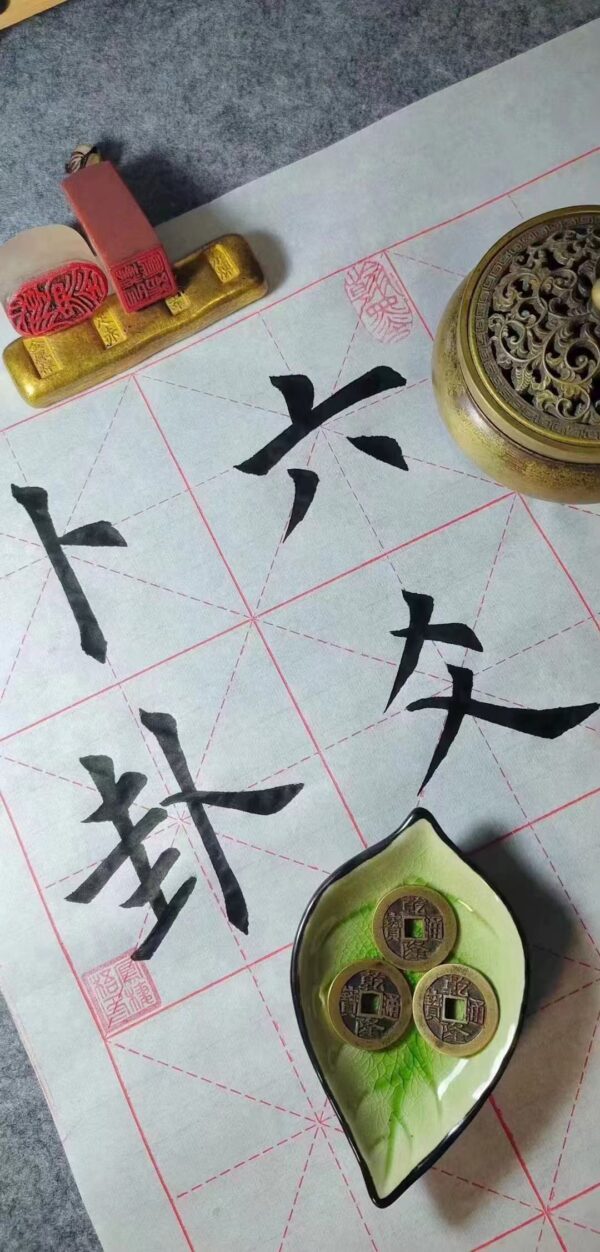 六爻
卜卦
乾隆通寶
乾隆通寶
乾隆通寶